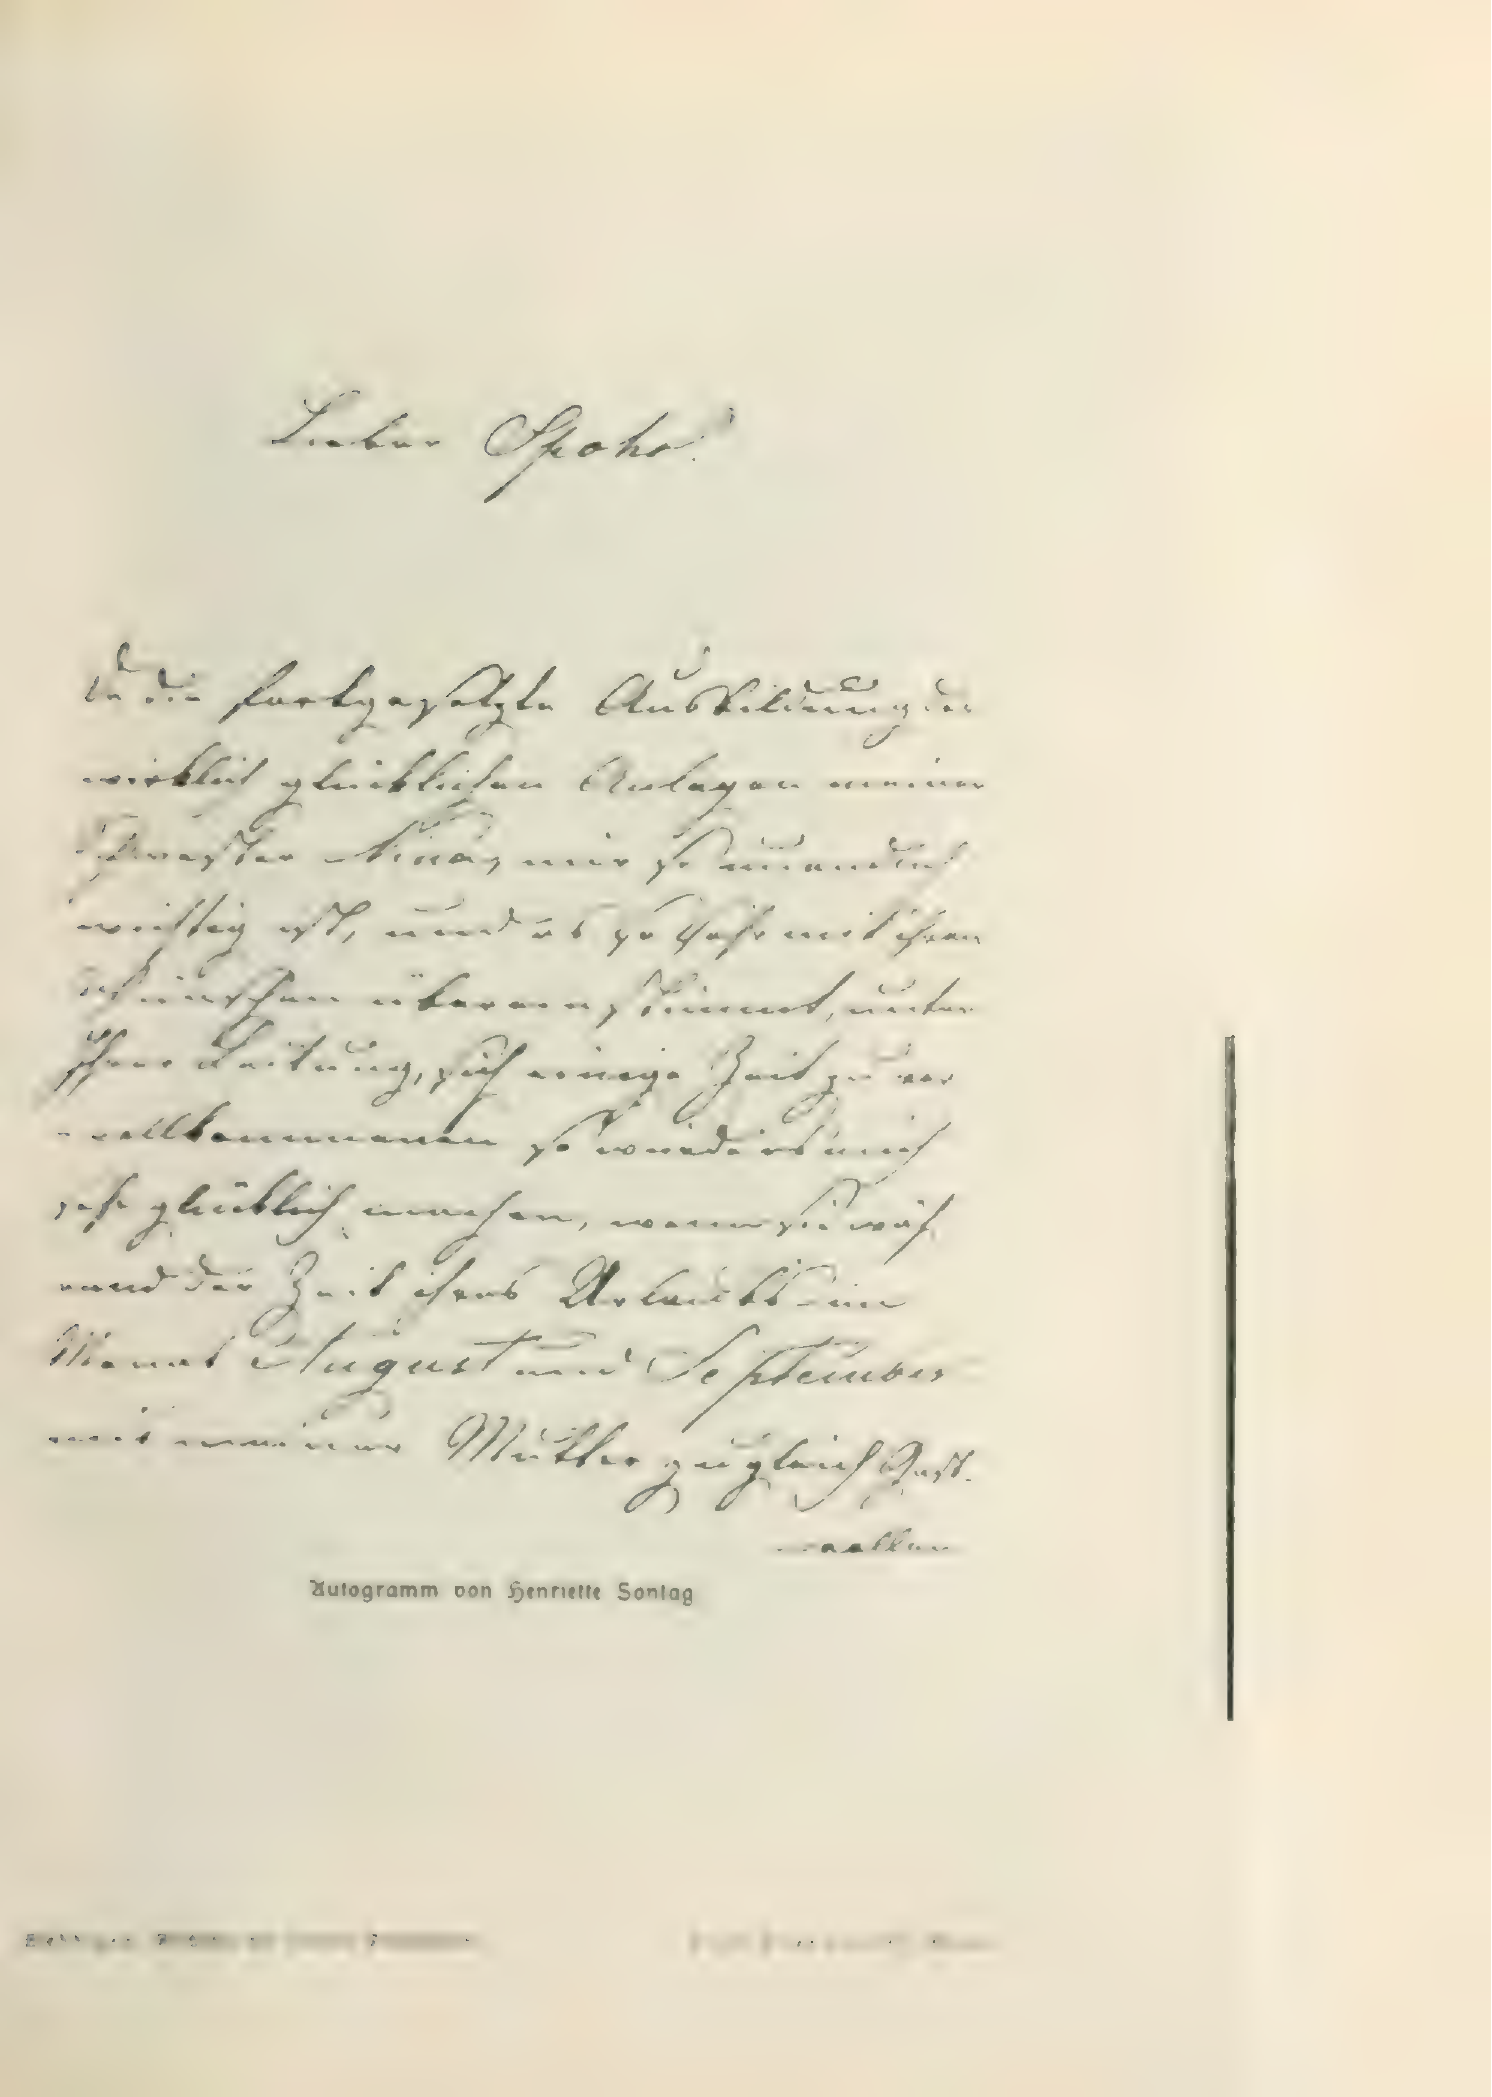 Lieber Spohr!
Da die fortgesetzte Ausbildung der
wirklich glücklichen Anlagen meiner
Schwester Nina, mir so unendlich
wichtig ist, und es so sehr mit ihren
Wünschen übereinstimmt, unter
Ihrer Leitung, sich einige Zeit zu ver
vollkommenen so würde es mich
sehr glücklich machen, wenn sie wäh
rend der Zeit ihres Urlaubs im
Monat August und September
mit meiner Mutter zugleich Gast.
wollen
Autogramm von Henriette Sontag